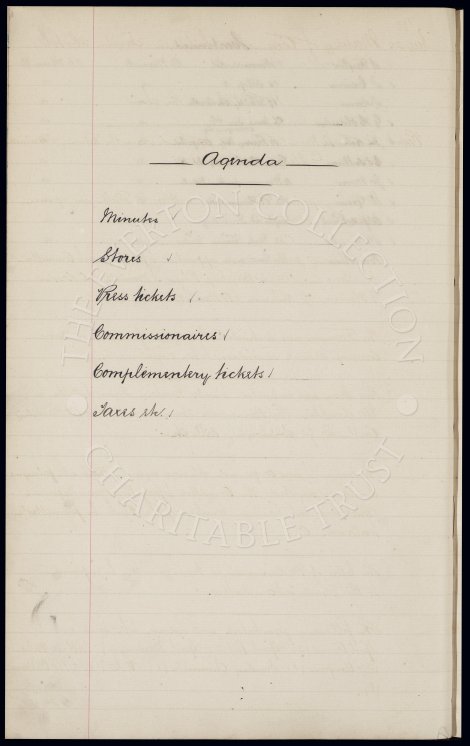 Agenda
Minutes
Stores
Press tickets
Commissionaires
Complementery tickets
Taxes etc.
THE EVERTON COLLECTION
CHARITABLE TRUST